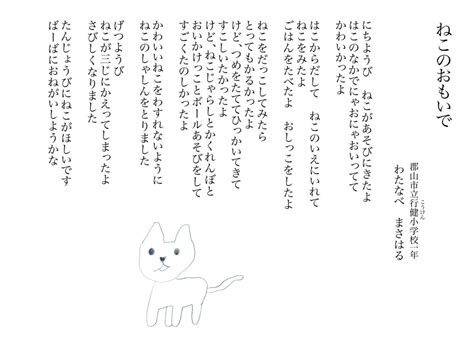 ねこのおもいで
郡山市立行健小学校一年
こうけん
わたなべ　まさはる
にちようび　ねこがあそびにきたよ
はこのなかでにゃおにゃおいってて
かわいかったよ
はこからだして　ねこのいえにいれて
ねこをみたよ
ごはんをたべたよ　おしっこをしたよ
ねこをだっこしてみたら
とってもかるかったよ
けど、つめをたててひっかいてきて
すこしいたかったよ
けど、ねこじゃらしとかくれんぼと
おいかけっことボールあそびをして
すごくたのしかったよ
かわいいねこをわすれないように
ねこのしゃしんをとりました
げつようび
ねこが三じにかえってしまったよ
さびしくなりました
たんじょうびにねこがほしいです
ばーばにおねがいしようかな